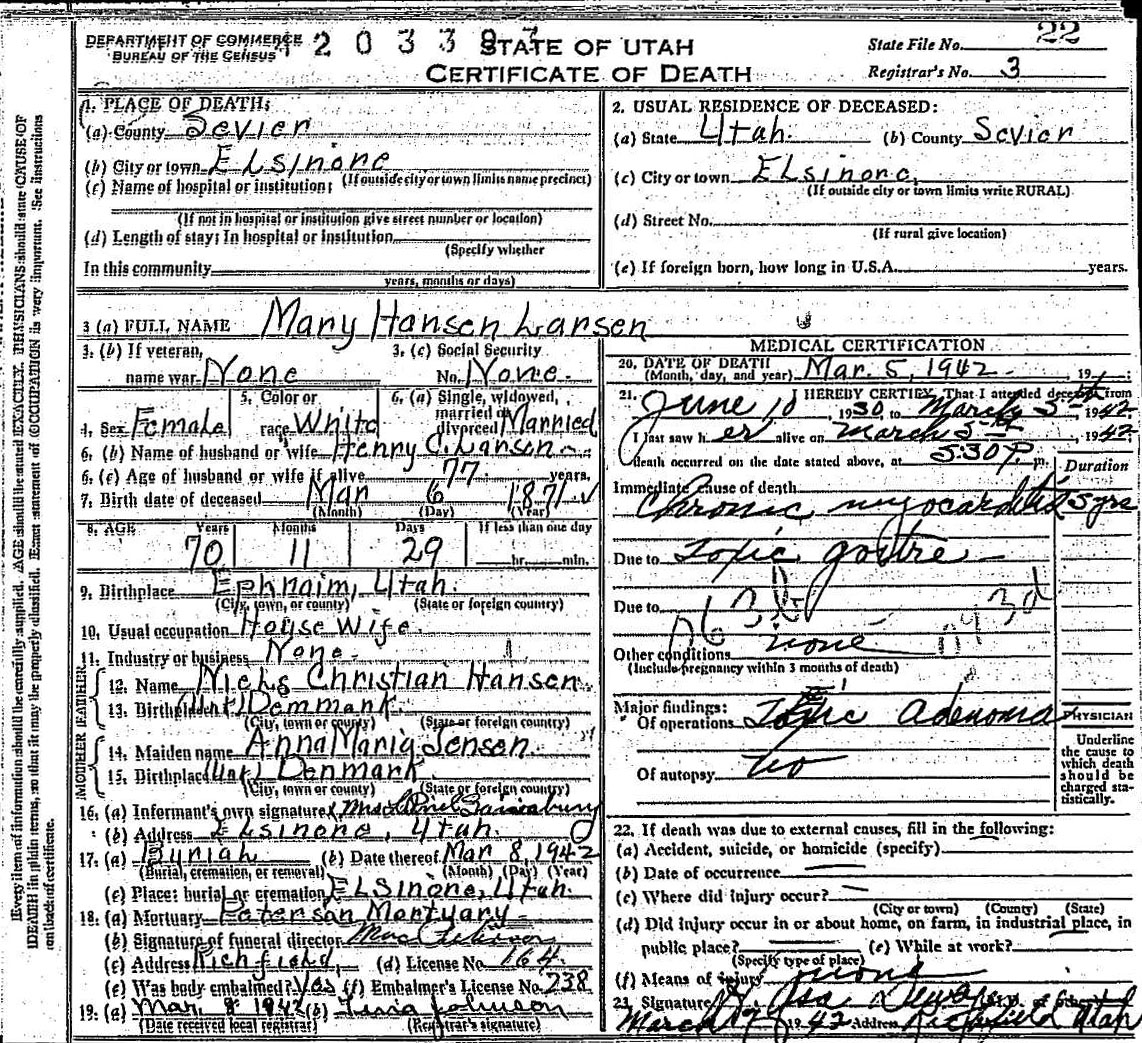 DEPARTMENT OF COMMERCE
BUREAU OF THE CENSUS
STATE OF UTAH
CERTIFICATE OF DEATH
State File No. 22
Registrar's No. 3
1. PLACE OF DEATH:
(a) County Sevier
(b) City or town Elsinore
(If outside city or town limits name precinct)
(c) Name of hospital or institution:
(If not in hospital or institution give street number or location)
(d) Length of stay: In hospital or institution
(Specify whether
In this community
years, months or days)
2. USUAL RESIDENCE OF DECEASED:
(a) State Utah. (b) County Sevier
(c) City or town Elsinore,
(If outside city or town limits write RURAL)
(d) Street No.
(If rural give location)
(e) If foreign born, how long in U.S.A. years.
3 (a) FULL NAME Mary Hansen Larsen
3. (b) If veteran, name war None
3. (c) Social Security No. None.
4. Sex Female
5. Color or race White
6. (a) Single, widowed, married or divorced Married
6. (b) Name of husband or wife Henry C. Larsen.
6. (c) Age of husband or wife if alive 77 years.
7. Birth date of deceased Mar 6 1871
(Month) (Day) (Year)
8. AGE Years Months Days If less than one day
70 11 29 hr. min.
9. Birthplace Ephraim, Utah.
(City, town, or county) (State or foreign country)
10. Usual occupation House Wife.
11. Industry or business None.
FATHER
12. Name Niels Christian Hansen.
13. Birthplace Denmark.
(City, town or county) (State or foreign country)
MOTHER
14. Maiden name Anna Maria Jensen.
15. Birthplace (Unk) Denmark.
(City, town or county) (State or foreign country)
16. (a) Informant's own signature Mrs
(b) Address Elsinore, Utah.
17. (a) Burial (b) Date thereof Mar 8, 1942
(Burial, cremation, or removal) (Month) (Day) (Year)
(c) Place: burial or cremation Elsinore, Utah.
18. (a) Mortuary Peterson Mortuary
(b) Signature of funeral director
(c) Address Richfield, (d) License No. 164.
(e) Was body embalmed? Yes (f) Embalmer's License No. 238
19. (a) Mar. 8 1942 (b) Johnson
(Date received local registrar) (Registrar's signature)
MEDICAL CERTIFICATION
20. DATE OF DEATH
(Month, day, and year) Mar. 5, 1942. , 19
21. I HEREBY CERTIFY, That I attended deceased from
June 10 1930, to March 5th 1942
I last saw her alive on March 5th, 1942.
death occurred on the date stated above, at 5:30 P. m.
Duration
Immediate cause of death
Chronic myocarditis 5 yrs
Due to Toxic goitre
Due to
Other conditions none
(Include pregnancy within 3 months of death)
Major findings:
Of operations Toxic Adenoma
Of autopsy no
PHYSICIAN
Underline
the cause to
which death
should be
charged sta-
tistically.
22. If death was due to external causes, fill in the following:
(a) Accident, suicide, or homicide (specify)
(b) Date of occurrence
(c) Where did injury occur?
(City or town) (County) (State)
(d) Did injury occur in or about home, on farm, in industrial place, in
public place? (e) While at work?
(Specify type of place)
(f) Means of injury none
23. Signature Asa Dewey
March 1942 Address Richfield Utah
Every item of information should be carefully supplied. AGE should be stated EXACTLY. PHYSICIANS should state CAUSE OF
DEATH in plain terms, so that it may be properly classified. Exact statement of OCCUPATION is very important. See instructions
on back of certificate.